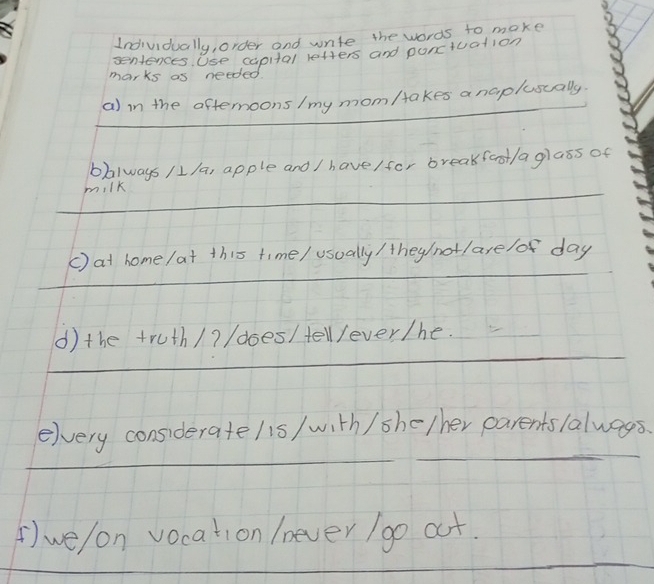 Individually, order and write the words to make
sentences. Use capital letters and punctuation
marks as needed.
a) in the afternoons/my mom/takes a nap/usually.
b) always / I /an apple and / have/for breakfast/a glass of
milk
c) at home/at this time/usually/they/not/are/of day
d) the truth / ? /does/ tell /ever/he.
e) very considerate / is / with / she / her parents/always.
f) we/on vocation /never /go out.